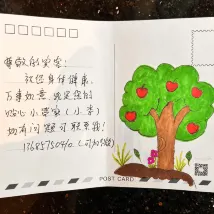 尊敬的业主:
祝您身体健康,
万事如意,我是您的
贴心小管家(小李)
如有问题可联系我!
13685750410(可加微信)
POST CARD